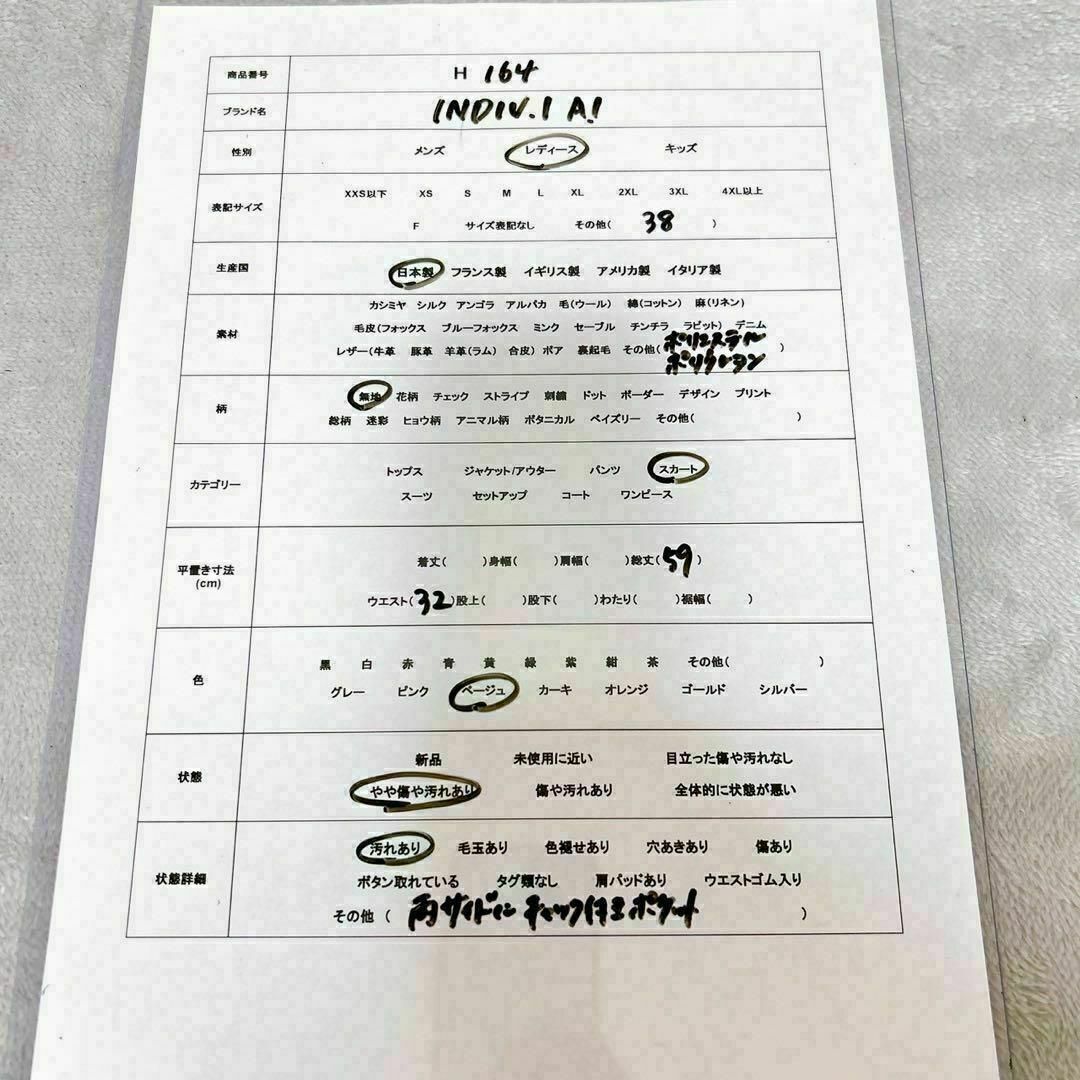 商品番号 H 164
ブランド名 INDIV.I A!
性別 メンズ レディース キッズ
XXS以下 XS S M L XL 2XL 3XL 4XL以上
表記サイズ
F サイズ表記なし その他( 38 )
生産国 日本製 フランス製 イギリス製 アメリカ製 イタリア製
カシミヤ シルク アンゴラ アルパカ 毛(ウール) 綿(コットン) 麻(リネン)
素材 毛皮(フォックス ブルーフォックス ミンク セーブル チンチラ ラビット) デニム
レザー(牛革 豚革 羊革(ラム) 合皮) ボア 裏起毛 その他( ポリエステル )
ポリウレタン
無地 花柄 チェック ストライプ 刺繍 ドット ボーダー デザイン プリント
柄
総柄 迷彩 ヒョウ柄 アニマル柄 ボタニカル ペイズリー その他( )
トップス ジャケット/アウター パンツ スカート
カテゴリー
スーツ セットアップ コート ワンピース
着丈( )身幅( )肩幅( )総丈( 59 )
平置き寸法
(cm)
ウエスト( 32 )股上( )股下( )わたり( )裾幅( )
黒 白 赤 青 黄 緑 紫 紺 茶 その他( )
色
グレー ピンク ベージュ カーキ オレンジ ゴールド シルバー
新品 未使用に近い 目立った傷や汚れなし
状態
やや傷や汚れあり 傷や汚れあり 全体的に状態が悪い
汚れあり 毛玉あり 色褪せあり 穴あきあり 傷あり
状態詳細 ボタン取れている タグ類なし 肩パッドあり ウエストゴム入り
その他 ( 両サイドに チャック付き ポケット )